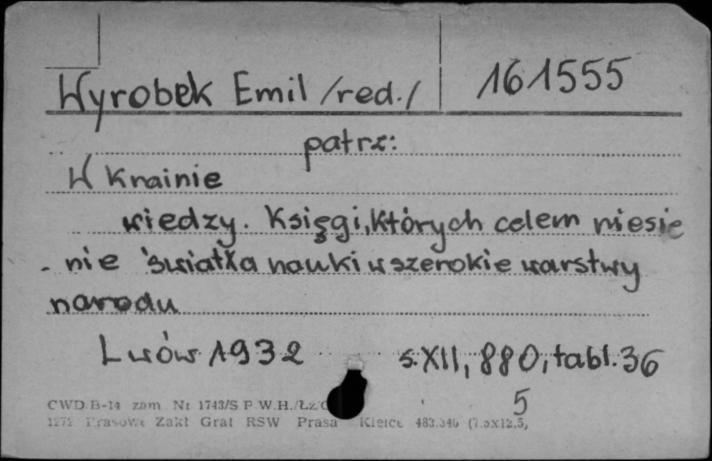 Wyrobek Emil /red./ 161555
patrz:
W Krainie
wiedzy. Księgi, których celem niesie
- nie światła nauki w szerokie warstwy
narodu
Lwów 1932 s. XII, 880, tabl. 36
5
CWD B-14 zam. Nr 1743/S P.W.H./Łz
Prasowe Zakł Graf RSW Prasa Kielce (7.5x12.5)